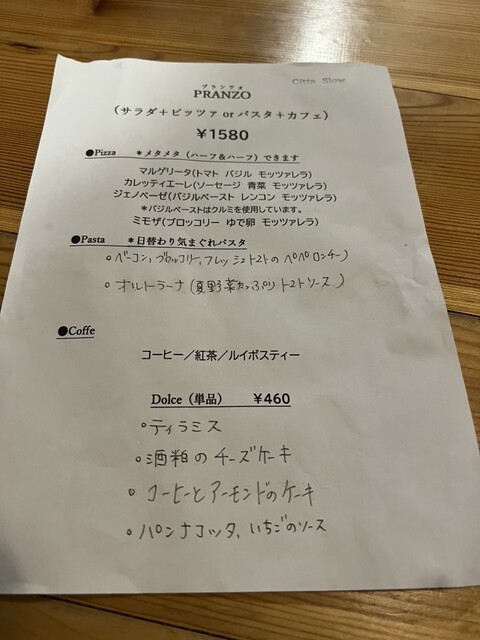 Citta Slow
プランツォ
PRANZO
(サラダ+ピッツァ or パスタ+カフェ)
¥1580
●Pizza *メタメタ(ハーフ&ハーフ)できます
マルゲリータ(トマト バジル モッツァレラ)
カレッティエーレ(ソーセージ 青菜 モッツァレラ)
ジェノベーゼ(バジルペースト レンコン モッツァレラ)
*バジルペーストはクルミを使用しています。
ミモザ(ブロッコリー ゆで卵 モッツァレラ)
●Pasta *日替わり気まぐれパスタ
○ベーコン、ブロッコリー、フレッシュトマトのペペロンチーノ
○オルトラーナ(夏野菜たっぷりトマトソース)
●Coffe
コーヒー/紅茶/ルイボスティー
Dolce(単品) ¥460
○ティラミス
○酒粕のチーズケーキ
○コーヒーとアーモンドのケーキ
○パンナコッタ、いちごのソース